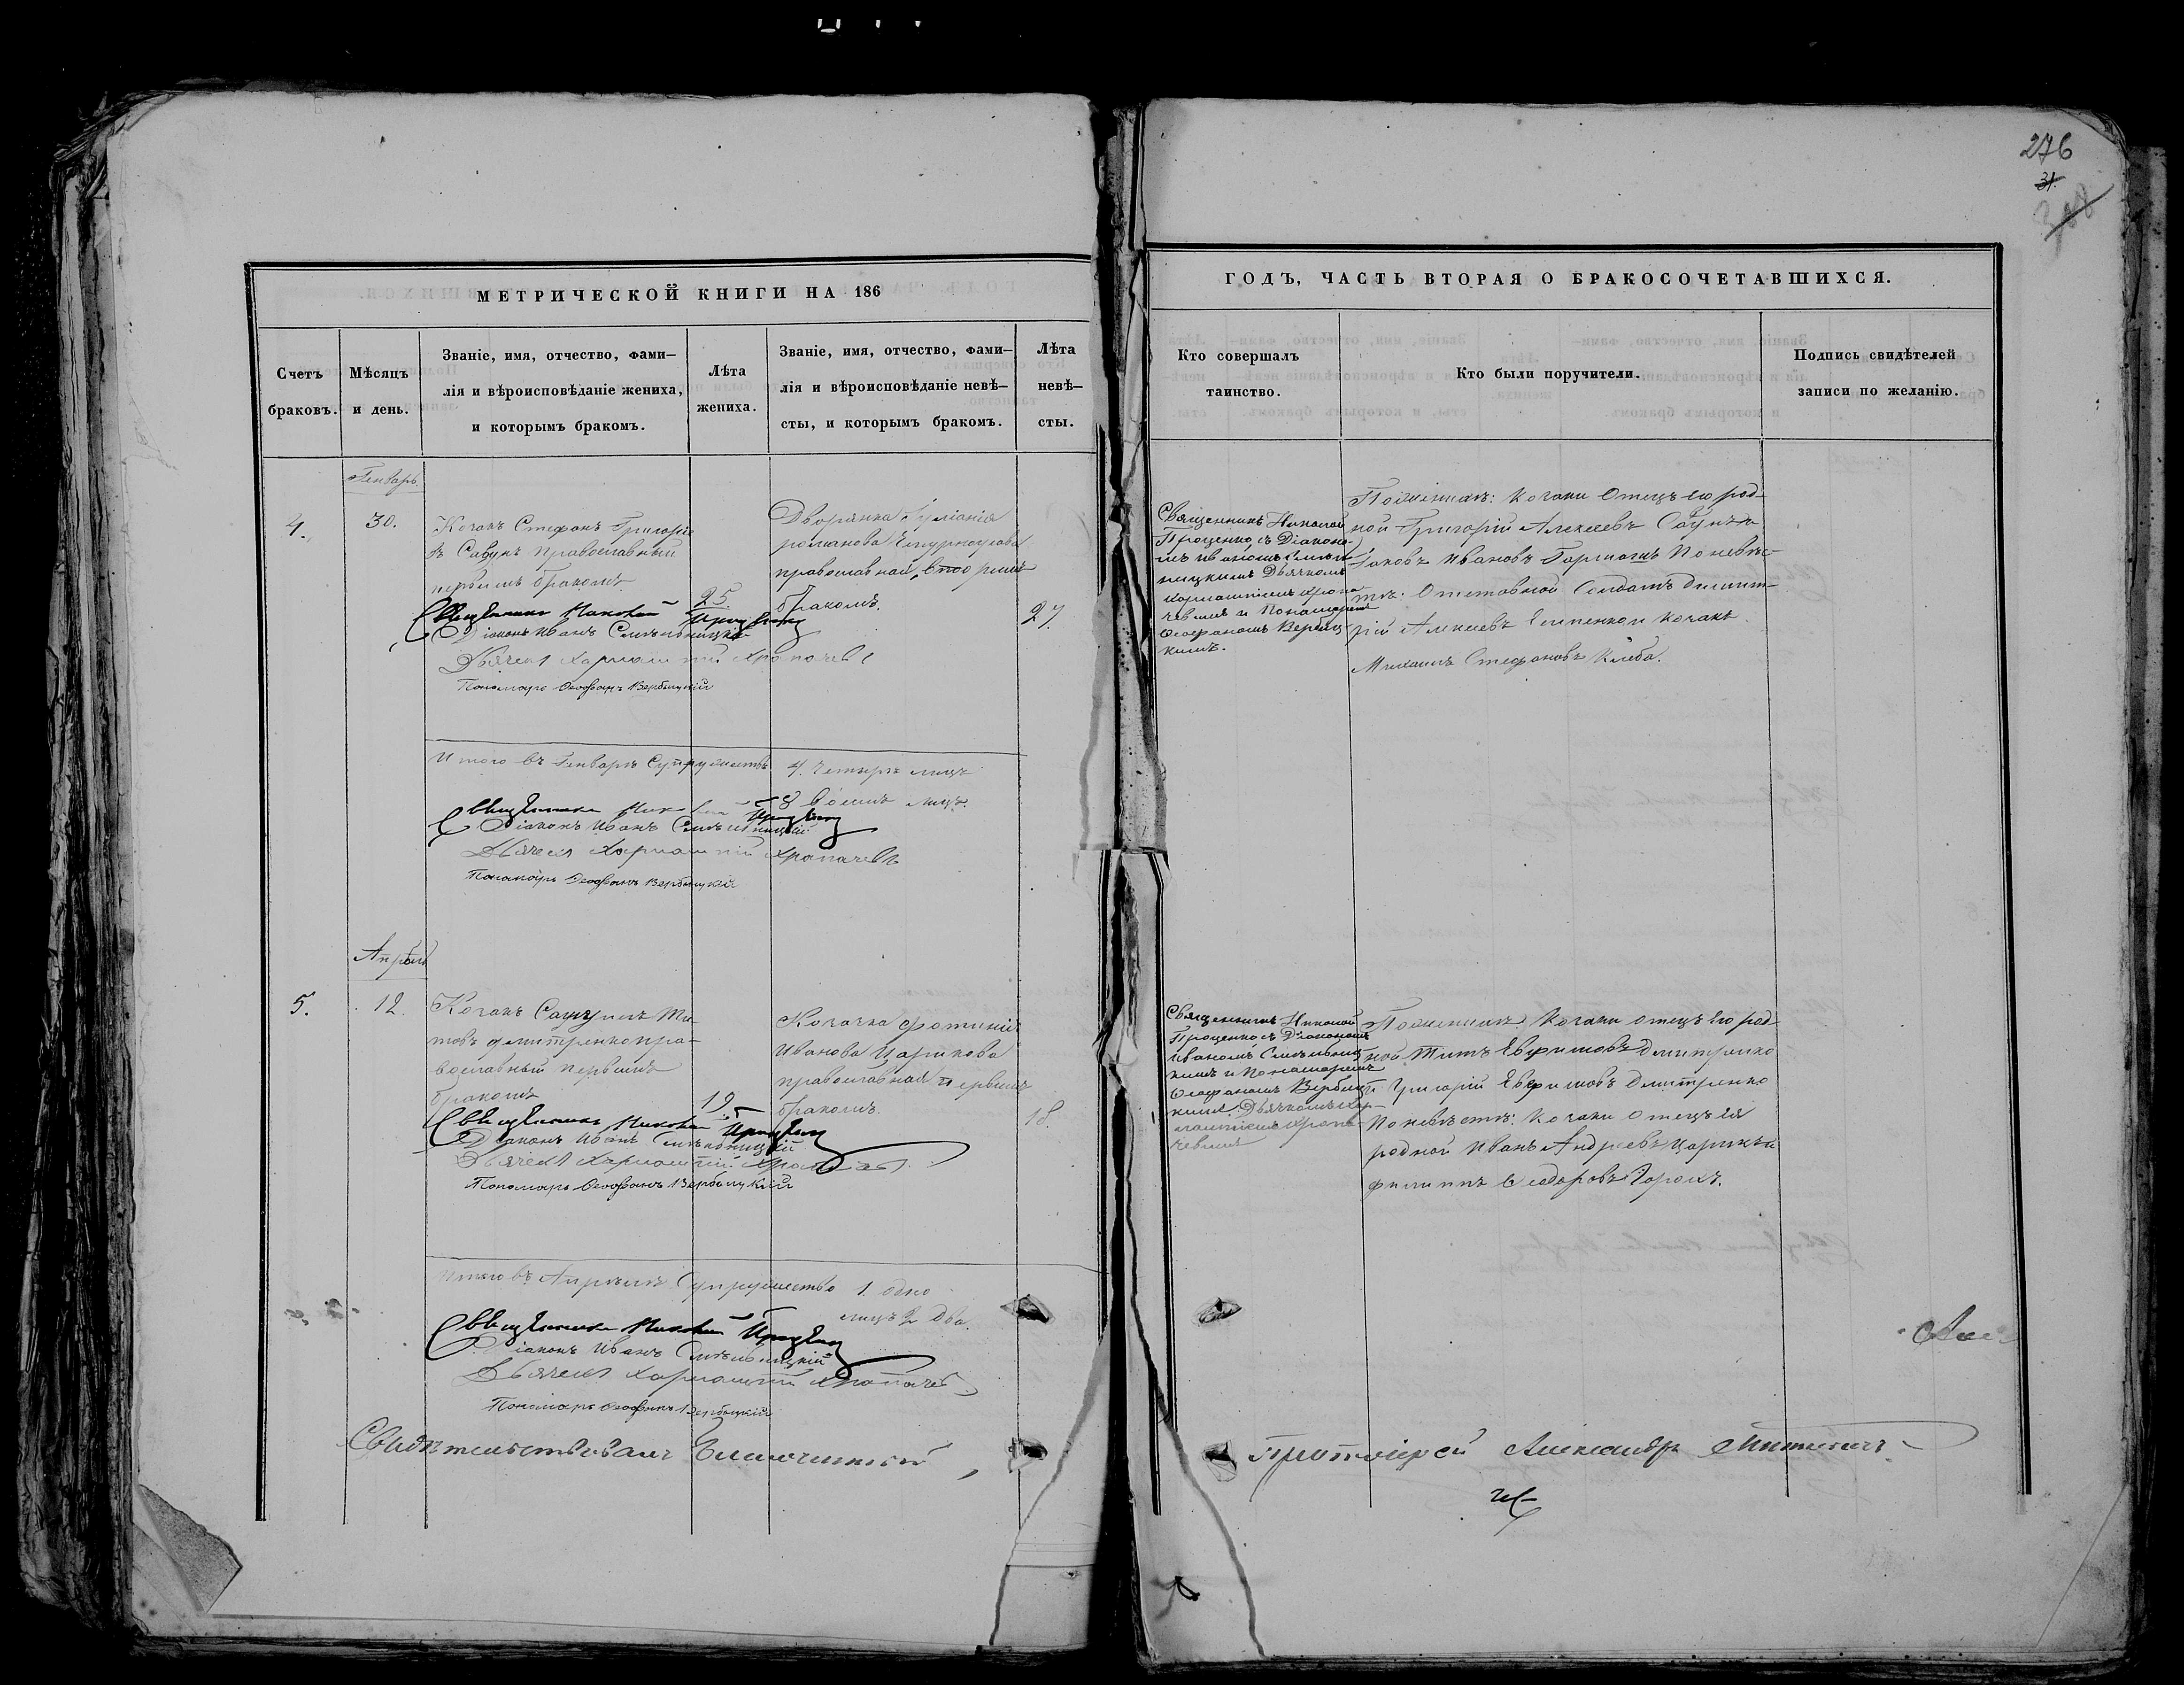 276
31.
МЕТРИЧЕСКОЙ КНИГИ НА 186
ГОДЪ, ЧАСТЬ ВТОРАЯ О БРАКОСОЧЕТАВШИХСЯ.
Счетъ
браковъ.
Мѣсяцъ
и день.
Званіе, имя, отчество, фами-
лія и вѣроисповѣданіе жениха,
и которымъ бракомъ.
Лѣта
жениха.
Званіе, имя, отчество, фами-
лія и вѣроисповѣданіе невѣ-
сты, и которымъ бракомъ.
Лѣта
невѣ-
сты.
Кто совершалъ
таинство.
Кто были поручители.
Подпись свидѣтелей
записи по желанію.
Генварь
4.
30.
Козакъ Стефанъ Григоріе
въ Савунъ православный
первымъ бракомъ
25
Дворянка Іуліанія
романова
православная, вторымъ
бракомъ.
27
Священникъ Николай
Проценко съ Діакono-
мъ Иваномъ Смѣль-
ницкимъ Дьячкомъ
Харлампіемъ Хропа-
чевымъ и Пономаремъ
Ѳеофаномъ Вербиц-
кимъ.
По женихѣ: козаки Отецъ его род-
ной Григорій Алексѣевъ Савунъ и
Іаковъ Ивановъ Гармашъ По невѣс-
тѣ: Отставной Солдатъ Димит-
рій Алексѣевъ козакъ
Михаилъ Стефановъ Клеба.
Священникъ Николай Проценко
Діаконъ Иванъ Смѣльницкій
Дьячекъ Харлампій Хропачевъ
Пономарь Ѳеофанъ Вербицкій
Итого въ Генварѣ Супружествъ 4. четыре лицъ
8 восемь лицъ.
Священникъ Николай Проценко
Діаконъ Иванъ Смѣльницкій
Дьячекъ Харлампій Хропачевъ
Пономарь Ѳеофанъ Вербицкій
Апрѣль
5.
12.
Козакъ Ти-
товъ Дмитренко пра-
вославный первымъ
бракомъ
19
Козачка Фотинія
Иванова Царикова
православная первымъ
бракомъ.
18.
Священникъ Николай
Проценко съ Діакономъ
Иваномъ Смѣльниц-
кимъ и Пономаремъ
Ѳеофаномъ Вербиц-
кимъ. Дьячкомъ Хар-
лампіемъ Хропа-
чевымъ
По женихѣ козаки отецъ его род-
ной Титъ Евфимовъ Дмитренко
и Григорій Евфимовъ Дмитренко
По невѣстѣ: козаки Отецъ ея
родной Иванъ Андреевъ Царикъ и
Филиппъ Ѳеодоровъ Горохъ.
Священникъ Николай Проценко
Діаконъ Иванъ Смѣльницкій
Дьячекъ Харлампій Хропачевъ
Пономарь Ѳеофанъ Вербицкій
Итого въ Апрѣлѣ Супружество 1. одно
лицъ 2 два.
Священникъ Николай Проценко
Діаконъ Иванъ Смѣльницкій
Дьячекъ Харлампій Хропачевъ
Пономарь Ѳеофанъ Вербицкій
Свидѣтельствовалъ Благочинный,
Протоіерей Александръ